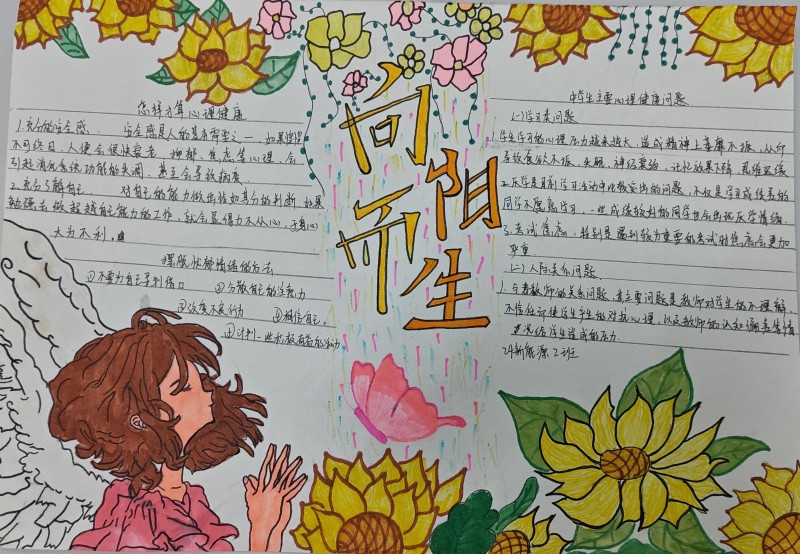 向阳而生
怎样才算心理健康
1.充分的安全感 安全感是人的基本需要之一,如果惶惶
不可终日,人便会很快衰老。抑郁、焦虑等心理,会
引起消化系统功能的失调,甚至会导致病变。
2.充分了解自己 对自己的能力做出恰如其分的判断,如果
勉强去做超越自己能力的工作,就会显得力不从心,于身心
大为不利。
摆脱忧郁情绪的方法
①不要为自己寻到借口 ②分散自己的注意力
③改变不良行为 ④相信自己。
⑤计划一些积极有益的活动
中学生主要心理健康问题
(一)学习类问题
1.学生学习的心理压力越来越大,造成精神上萎靡不振,从而
导致食欲不振、失眠、神经衰弱、记忆效果下降、思维迟缓
2.厌学是目前学习活动中比较突出的问题,不仅是学习成绩差的
同学不愿意学习,一些成绩较好的同学也会出现厌学情绪。
3.考试焦虑,特别是遇到较为重要的考试时焦虑会更加
严重
(二)人际关系问题
1.与老教师的关系问题,其主要问题是教师对学生的不理解、
不信任而使学生产生的对抗心理,以及教师的认知偏差等情
况给学生造成的压力
24新能源2班